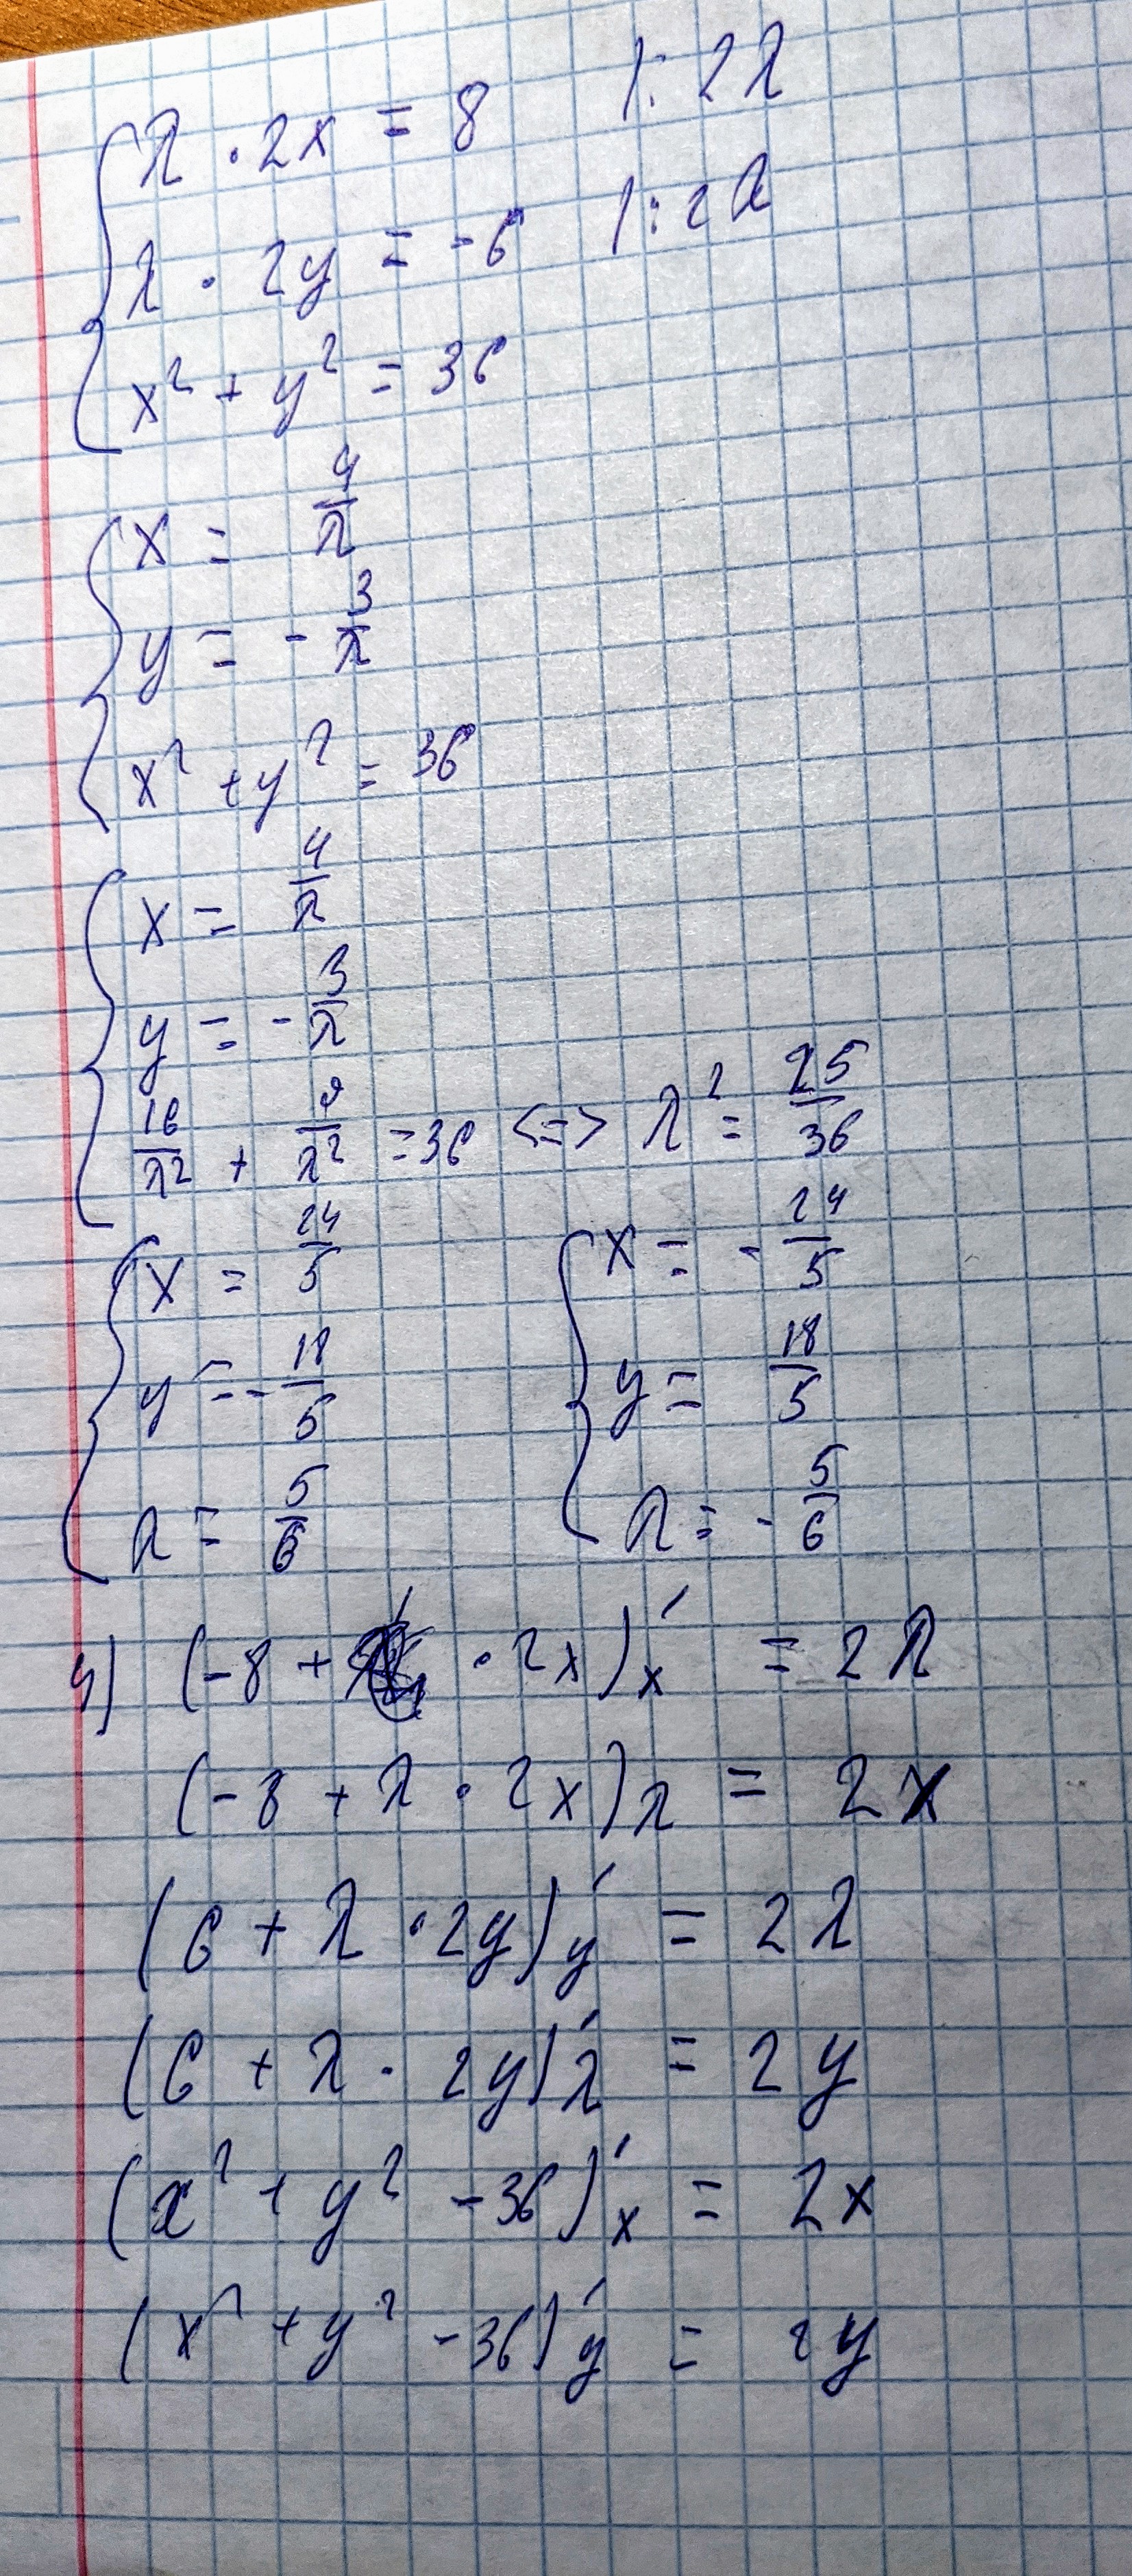 λ · 2x = 8 |: 2λ
λ · 2y = -6 |: 2λ
x² + y² = 36
x = 4/λ
y = - 3/λ
x² + y² = 36
x = 4/λ
y = - 3/λ
16/λ² + 9/λ² = 36 <=> λ² = 25/36
x = 24/5 x = - 24/5
y = - 18/5 y = 18/5
λ = 5/6 λ = - 5/6
4) (-8 + λ · 2x)'x = 2λ
(-8 + λ · 2x)λ = 2x
(6 + λ · 2y)'y = 2λ
(6 + λ · 2y)'λ = 2y
(x² + y² - 36)'x = 2x
(x² + y² - 36)'y = 2y